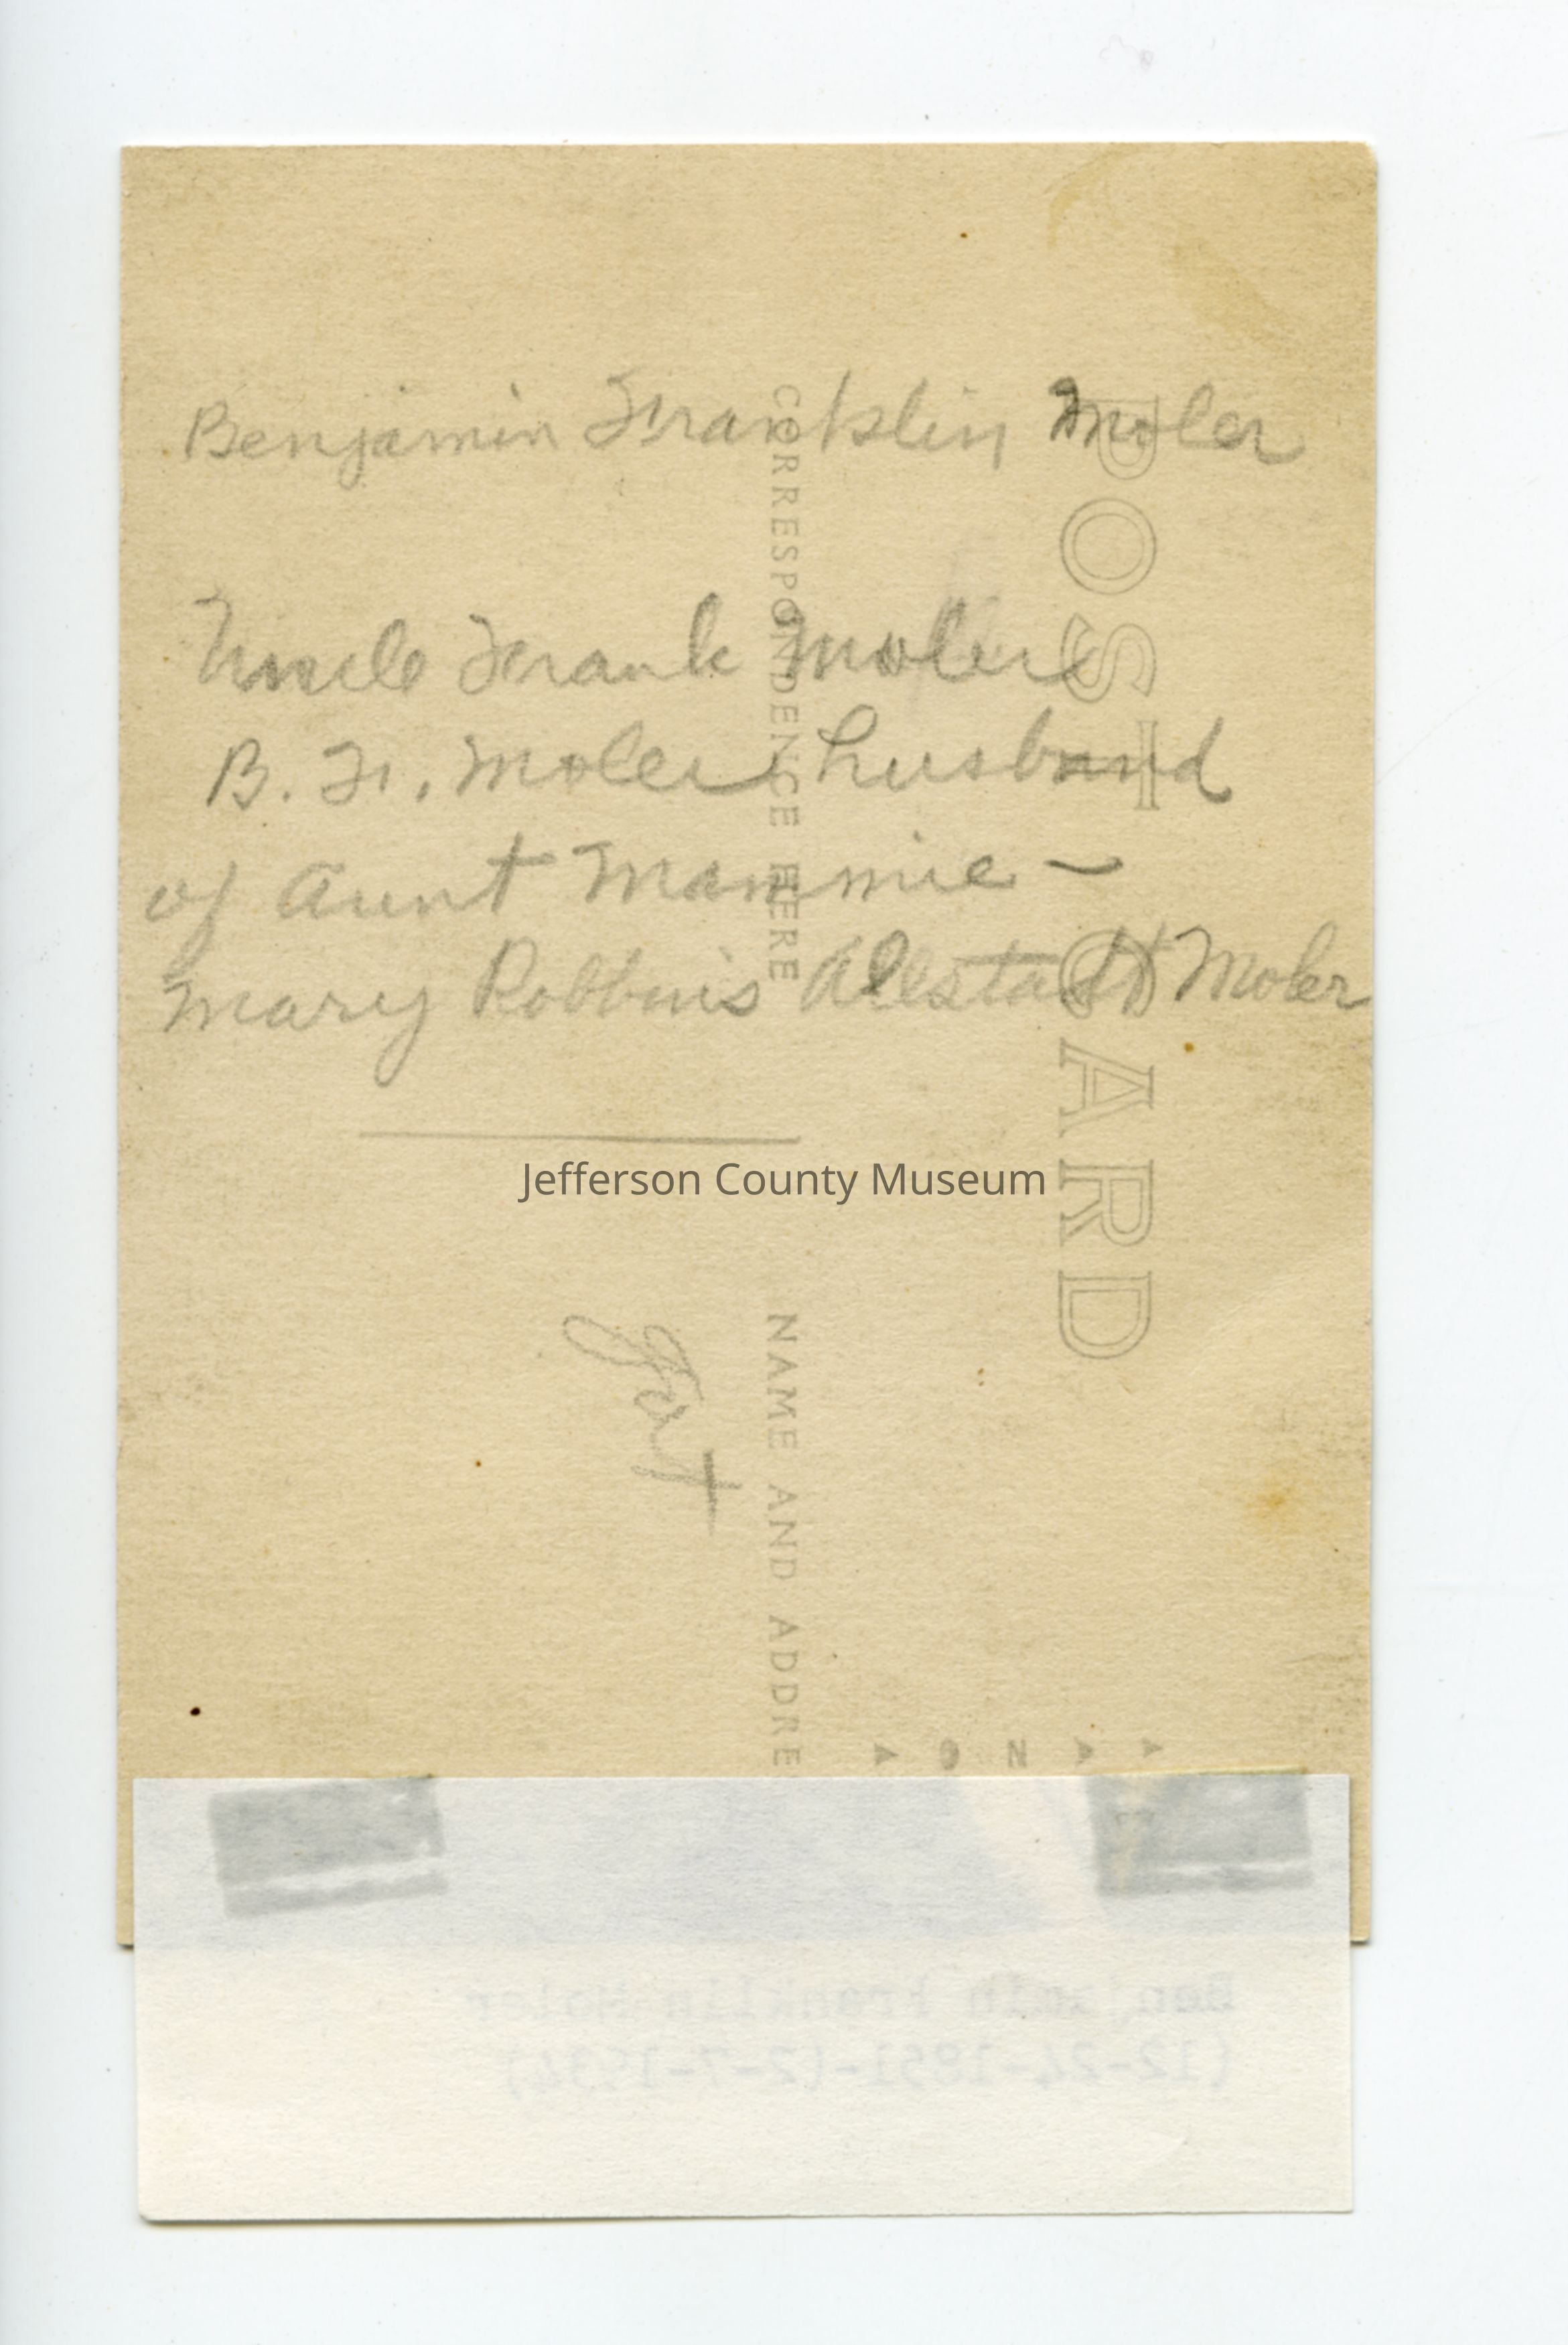 Benjamin Franklin Moler
Uncle Frank Moler
B. F. Moler husband
of Aunt Mammie —
Mary Robbins Allstadt Moler
Jefferson County Museum
POST CARD
CORRESPONDENCE HERE
NAME AND ADDRE
Benjamin Franklin Moler
(12-24-1851-(2-7-1934)